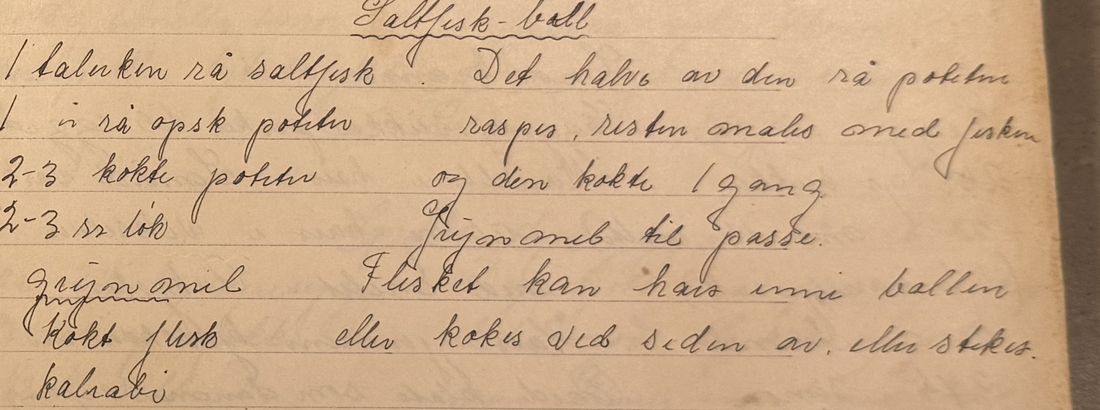 Saltfisk-ball
1 talerken rå saltfisk. Det halve av den rå poteten
1 " rå opsk poteter raspes, resten males med fisken
2-3 kokte poteter og den kokte 1 gang
2-3 løk Grynmel til passe.
grynmel Flesket kan haes inni ballen
kokt flesk eller kokes ved siden av. eller stekes.
kalrabi